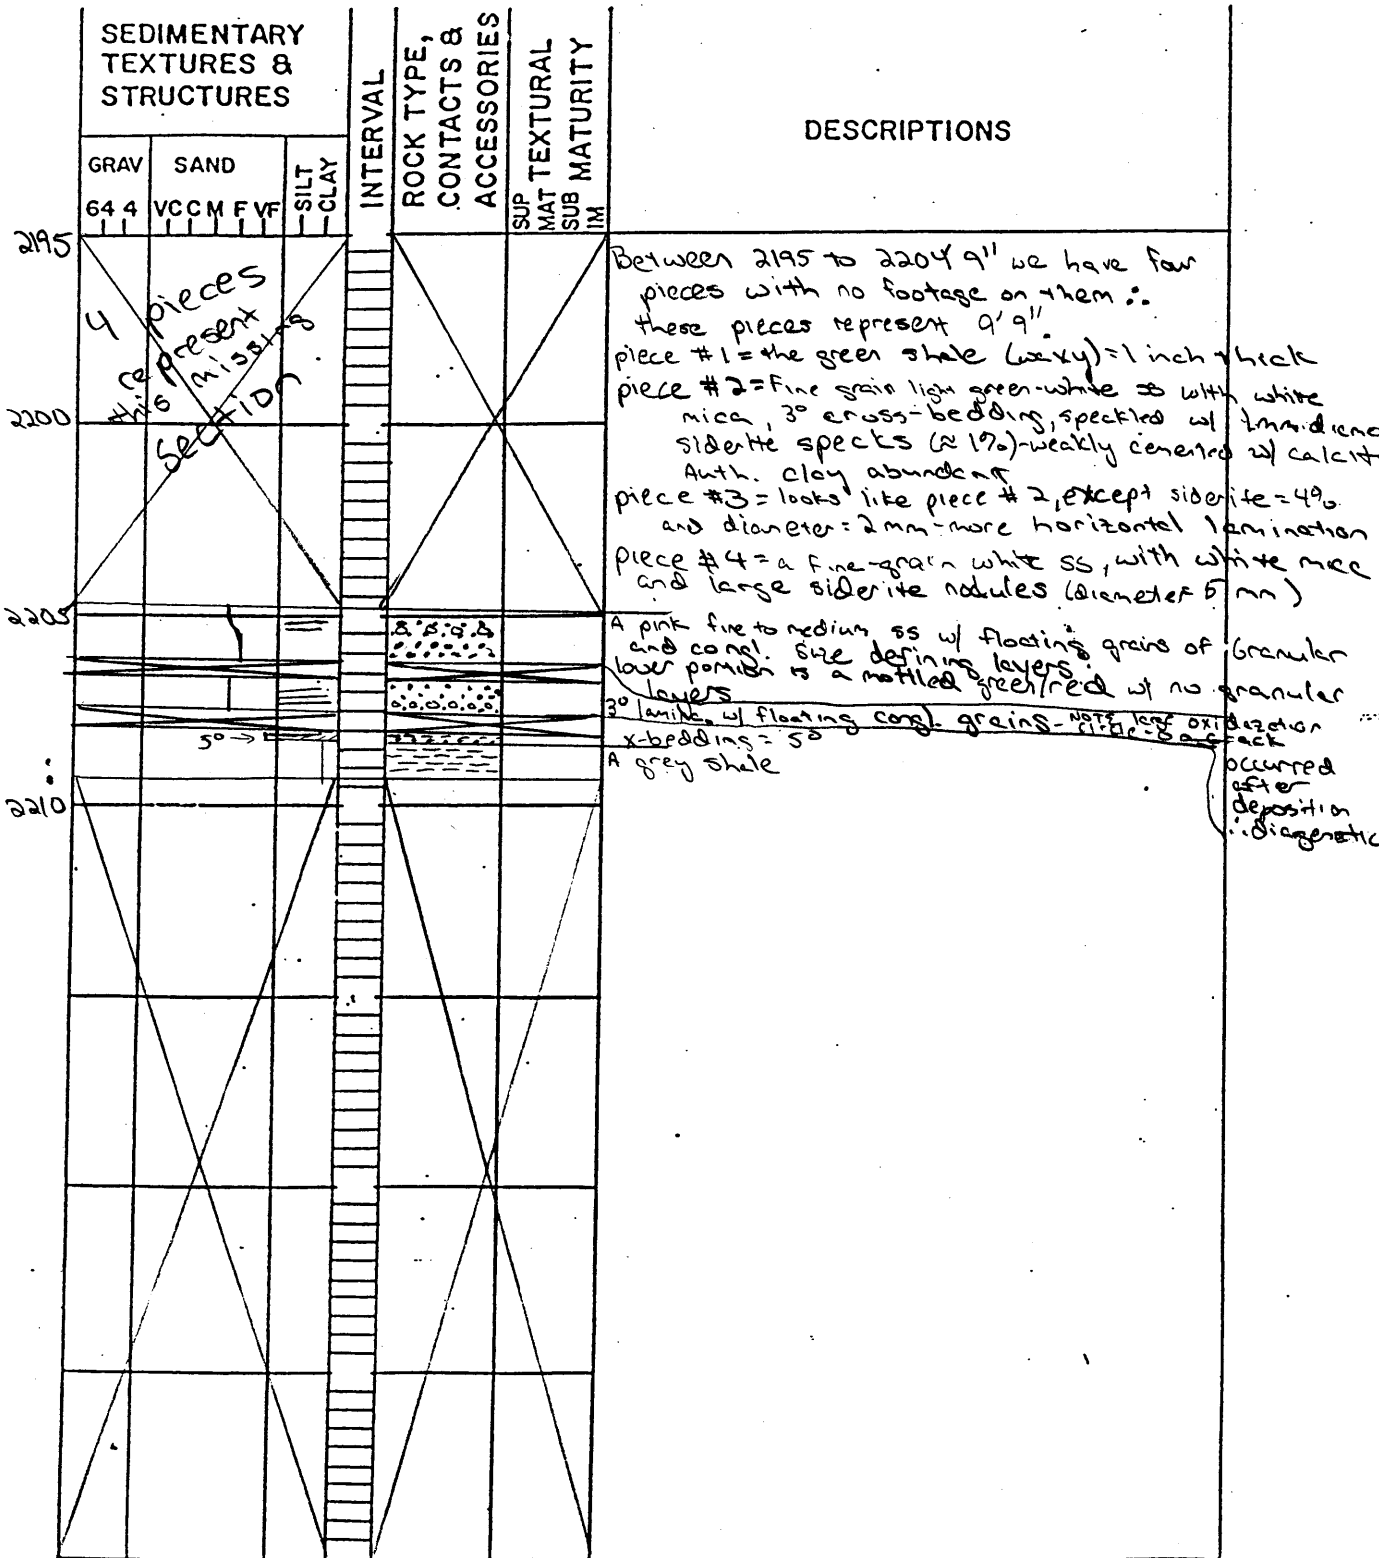 SEDIMENTARY
TEXTURES &
STRUCTURES
GRAV SAND SILT CLAY
64 4 VC C M F VF
INTERVAL
ROCK TYPE,
CONTACTS &
ACCESSORIES
TEXTURAL
MATURITY
SUP
MAT
SUB
IM
DESCRIPTIONS
2195
2200
2205
2210
4 pieces
represent
this missing
section
5° →
Between 2195 to 2204' 9" we have four
pieces with no footage on them ∴
these pieces represent 9' 9".
piece #1 = the green shale (waxy) = 1 inch thick
piece #2 = Fine grain light green-white ss with white
mica, 3° cross-bedding, speckled w/ 1mm diame
siderite specks (≈ 1%) - weakly cemented w/ calcite
Auth. clay abundant
piece #3 = looks like piece #2, except siderite = 4%
and diameter = 2mm - more horizontal lamination
piece #4 = a fine-grain white ss, with white mica
and large siderite nodules (diameter 5 mm)
A pink fine to medium ss w/ floating grains of Granular
and congl. size defining layers.
lower portion is a mottled green/red w/ no granular
layers
3° lamina. w/ floating congl. grains - Note oxidazation
x-bedding = 5°
A grey shale
occurred
after
deposition
∴ diagenetic